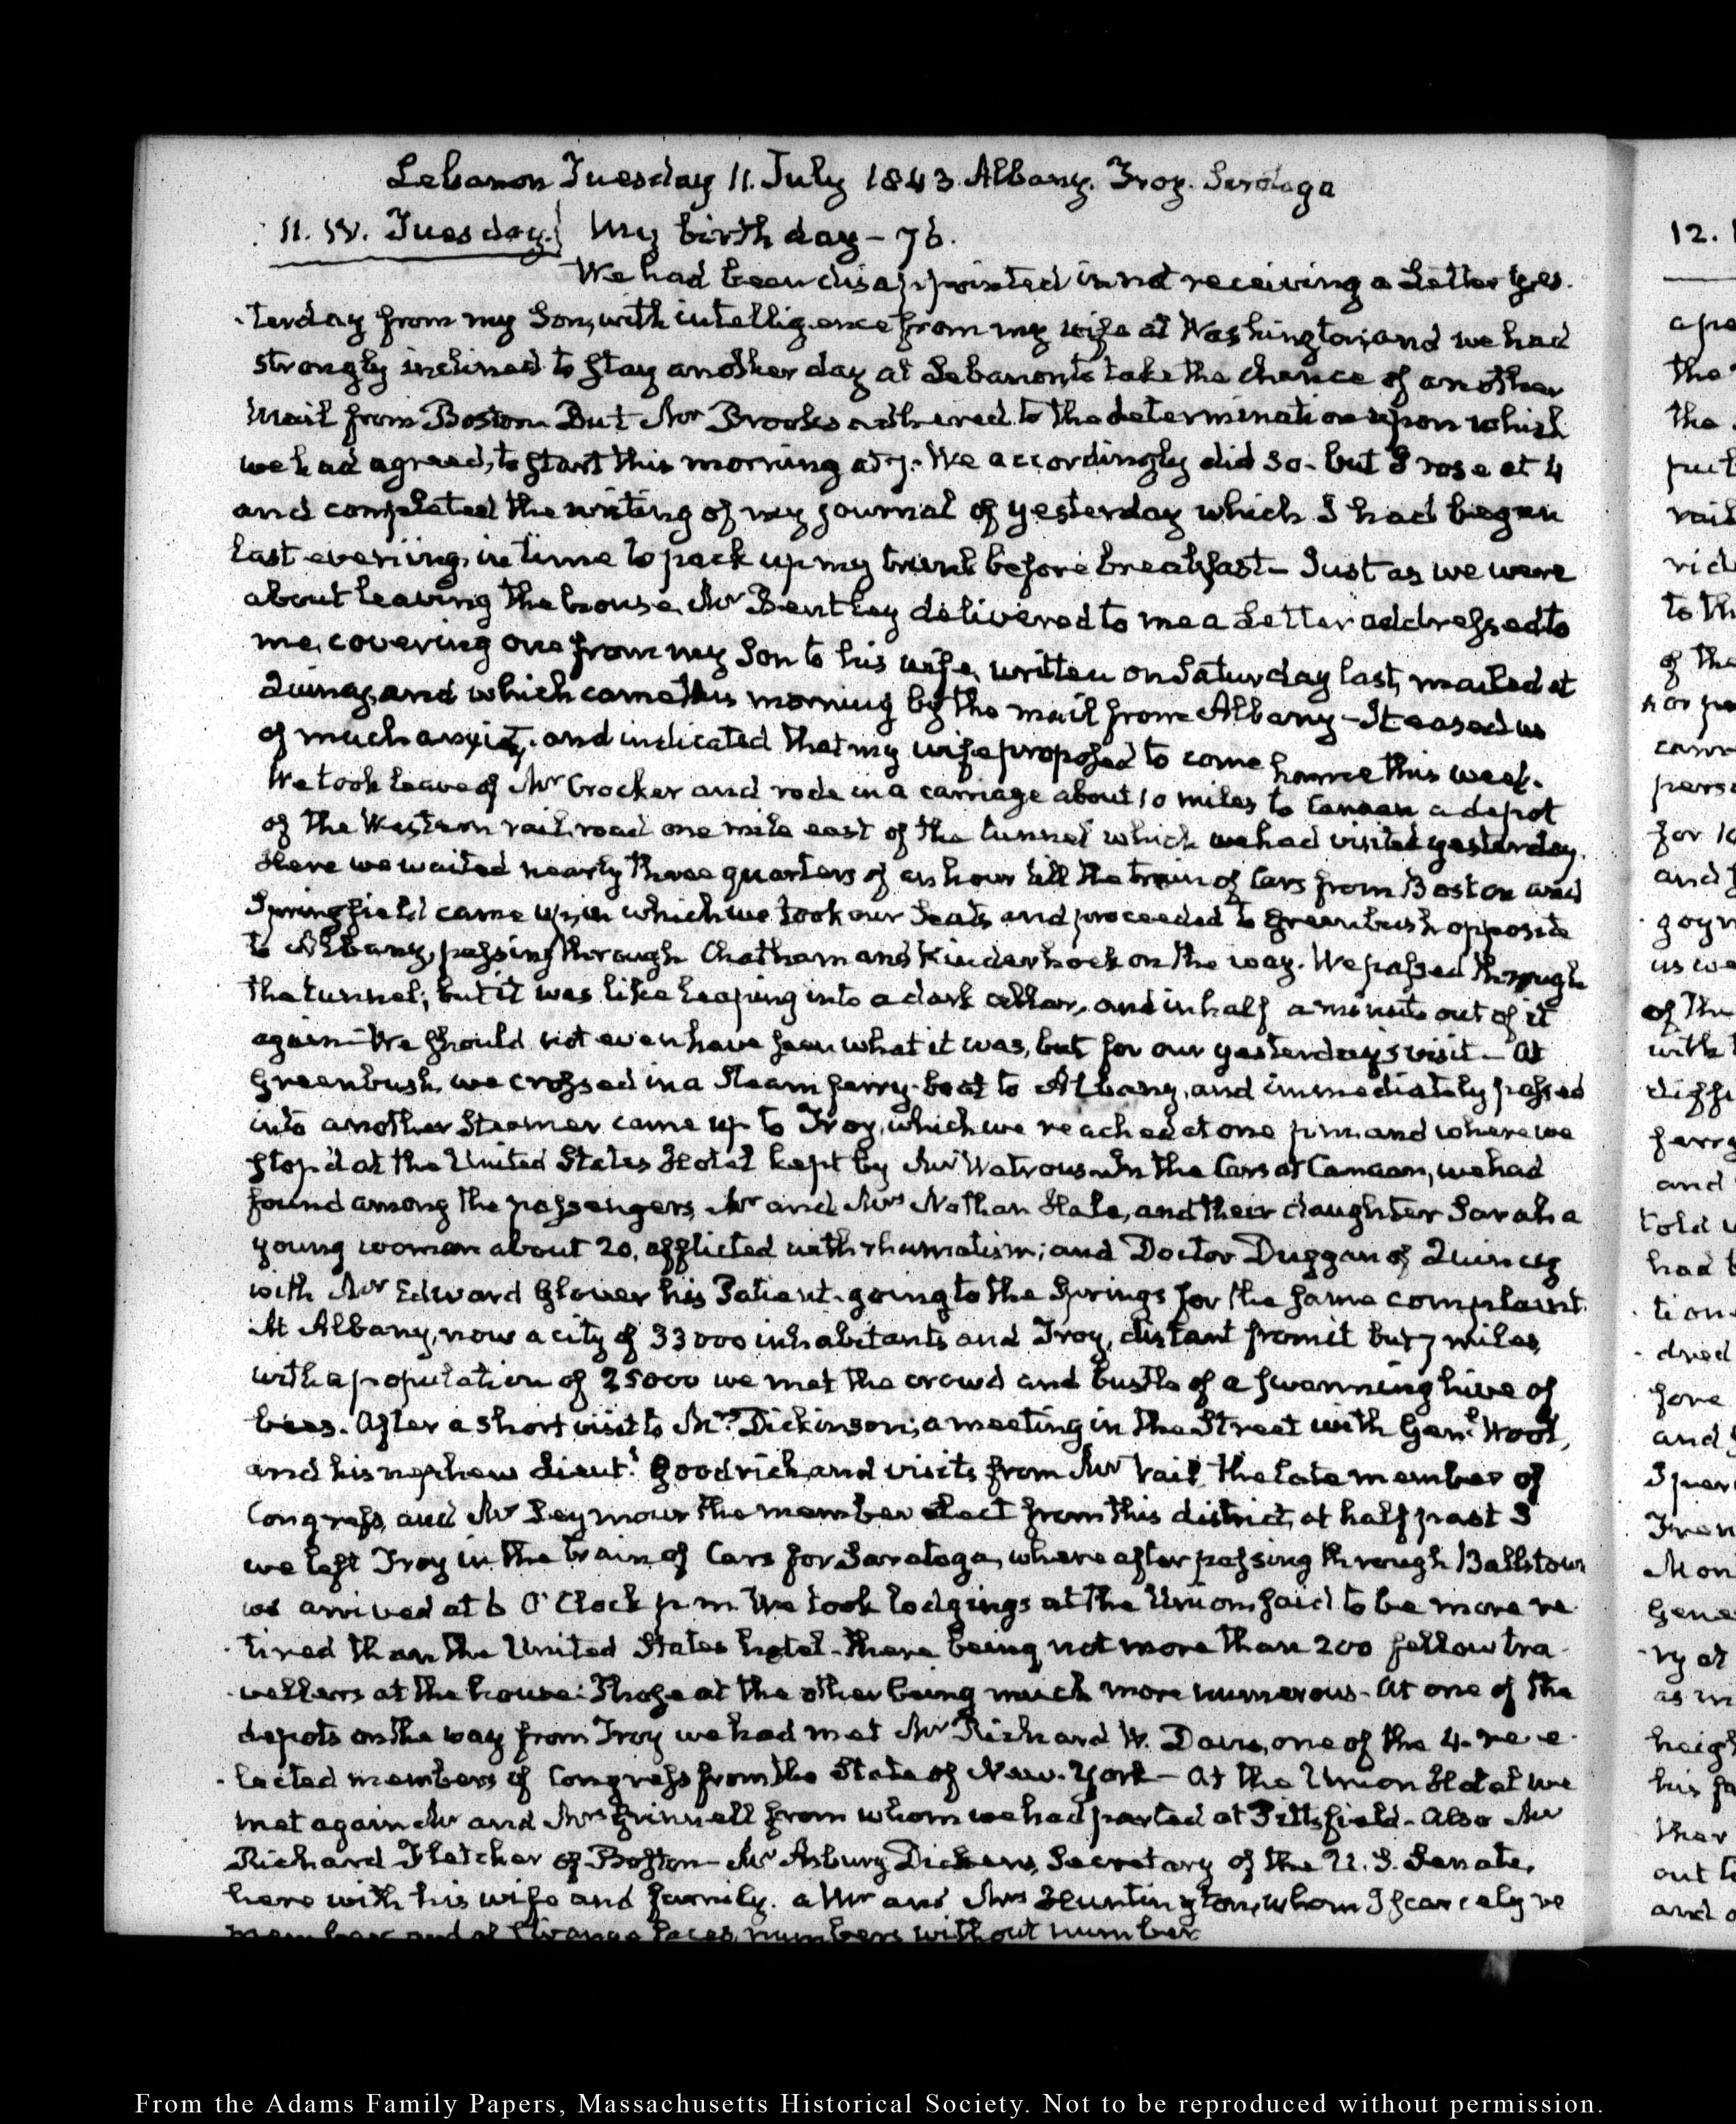 Lebanon Tuesday 11. July 1843. Albany. Troy. Saratoga
11. IV. Tuesday.} My birth day – 76.
We had been disappointed in not receiving a Letter yes-
terday from my Son, with intelligence from my wife at Washington, and we had
strongly inclined to stay another day at Lebanon to take the chance of another
Mail from Boston. But Mr Brooks adhered to the determination upon which
we had agreed, to start this morning at 7. We accordingly did so. but I rose at 4
and completed the writing of my journal of yesterday which I had began
last evening in time to pack up my trunk before breakfast – Just as we were
about leaving the house, Mr Bentley delivered to me a Letter addressed to
me, covering one from my Son to his wife, written on Saturday last, mailed at
Quincy, and which came this morning by the mail from Albany – It eased us
of much anxiety, and indicated that my wife proposed to come home this week.
We took leave of Mr Crocker and rode in a carriage about 10 miles to Canaan a depot
of the Western rail road one mile east of the tunnel which we had visited yesterday.
Here we waited nearly three quarters of an hour till the train of Cars from Boston and
Springfield came up, in which we took our Seats and proceeded to Greenbush opposite
to Albany, passing through Chatham and Kinderhook on the way. We passed through
the tunnel; but it was like leaping into a dark cellar, and in half a minute out of it
again – We should not even have seen what it was, but for our yesterday's visit – At
Greenbush we crossed in a Steam ferry-boat to Albany, and immediately passed
into another Steamer came up to Troy, which we reached at one p.m. and where we
stop'd at the United States Hotel kept by Mr Watrous. In the Cars at Canaan, we had
found among the passengers, Mr and Mrs Nathan Hale, and their daughter Sarah a
young woman about 20, afflicted with rhumatism; and Doctor Duggan of Quincy
with Mr Edward Glover his Patient. going to the Springs for the same complaint.
At Albany, now a city of 33000 inhabitants and Troy, distant from it but 7 miles,
with a population of 25000 we met the crowd and bustle of a swarming hive of
bees. After a short visit to Mrs Dickinson; a meeting in the Street with Genl Wool,
and his nephew Lieutt Goodrich, and visits from Mr Vail the late member of
Congress, and Mr Seymour the member elect from this district, at half past 3
we left Troy in the train of Cars for Saratoga, where after passing through Ballstown
we arrived at 6 O'Clock p.m. We took lodgings at the Union, said to be more re-
tired than the United States hotel – there being not more than 200 fellow tra-
vellers at the house: Those at the other being much more numerous – At one of the
depots on the way from Troy we had met Mr Richard W. Davis, one of the 4 re-e-
lected members of Congress from the State of New-York – At the Union Hotel we
met again Mr and Mrs Grinnell from whom we had parted at Pittsfield – Also Mr
Richard Fletcher of Boston – Mr Asbury Dickens, Secretary of the U.S. Senate,
here with his wife and family. a Mr and Mrs Huntington, whom I scarcely re
member and of strange faces, numbers without number
12.
apa
the
the
put
rail
rid
to th
of the
carr
perso
for 10
and
goyn
us we
of Thu
with
diffi
ferry
and
told
had
tion
dred
fore
and
Fren
Mon
Gene
ry at
as in
heigh
his fa
ther
out
and
From the Adams Family Papers, Massachusetts Historical Society. Not to be reproduced without permission.